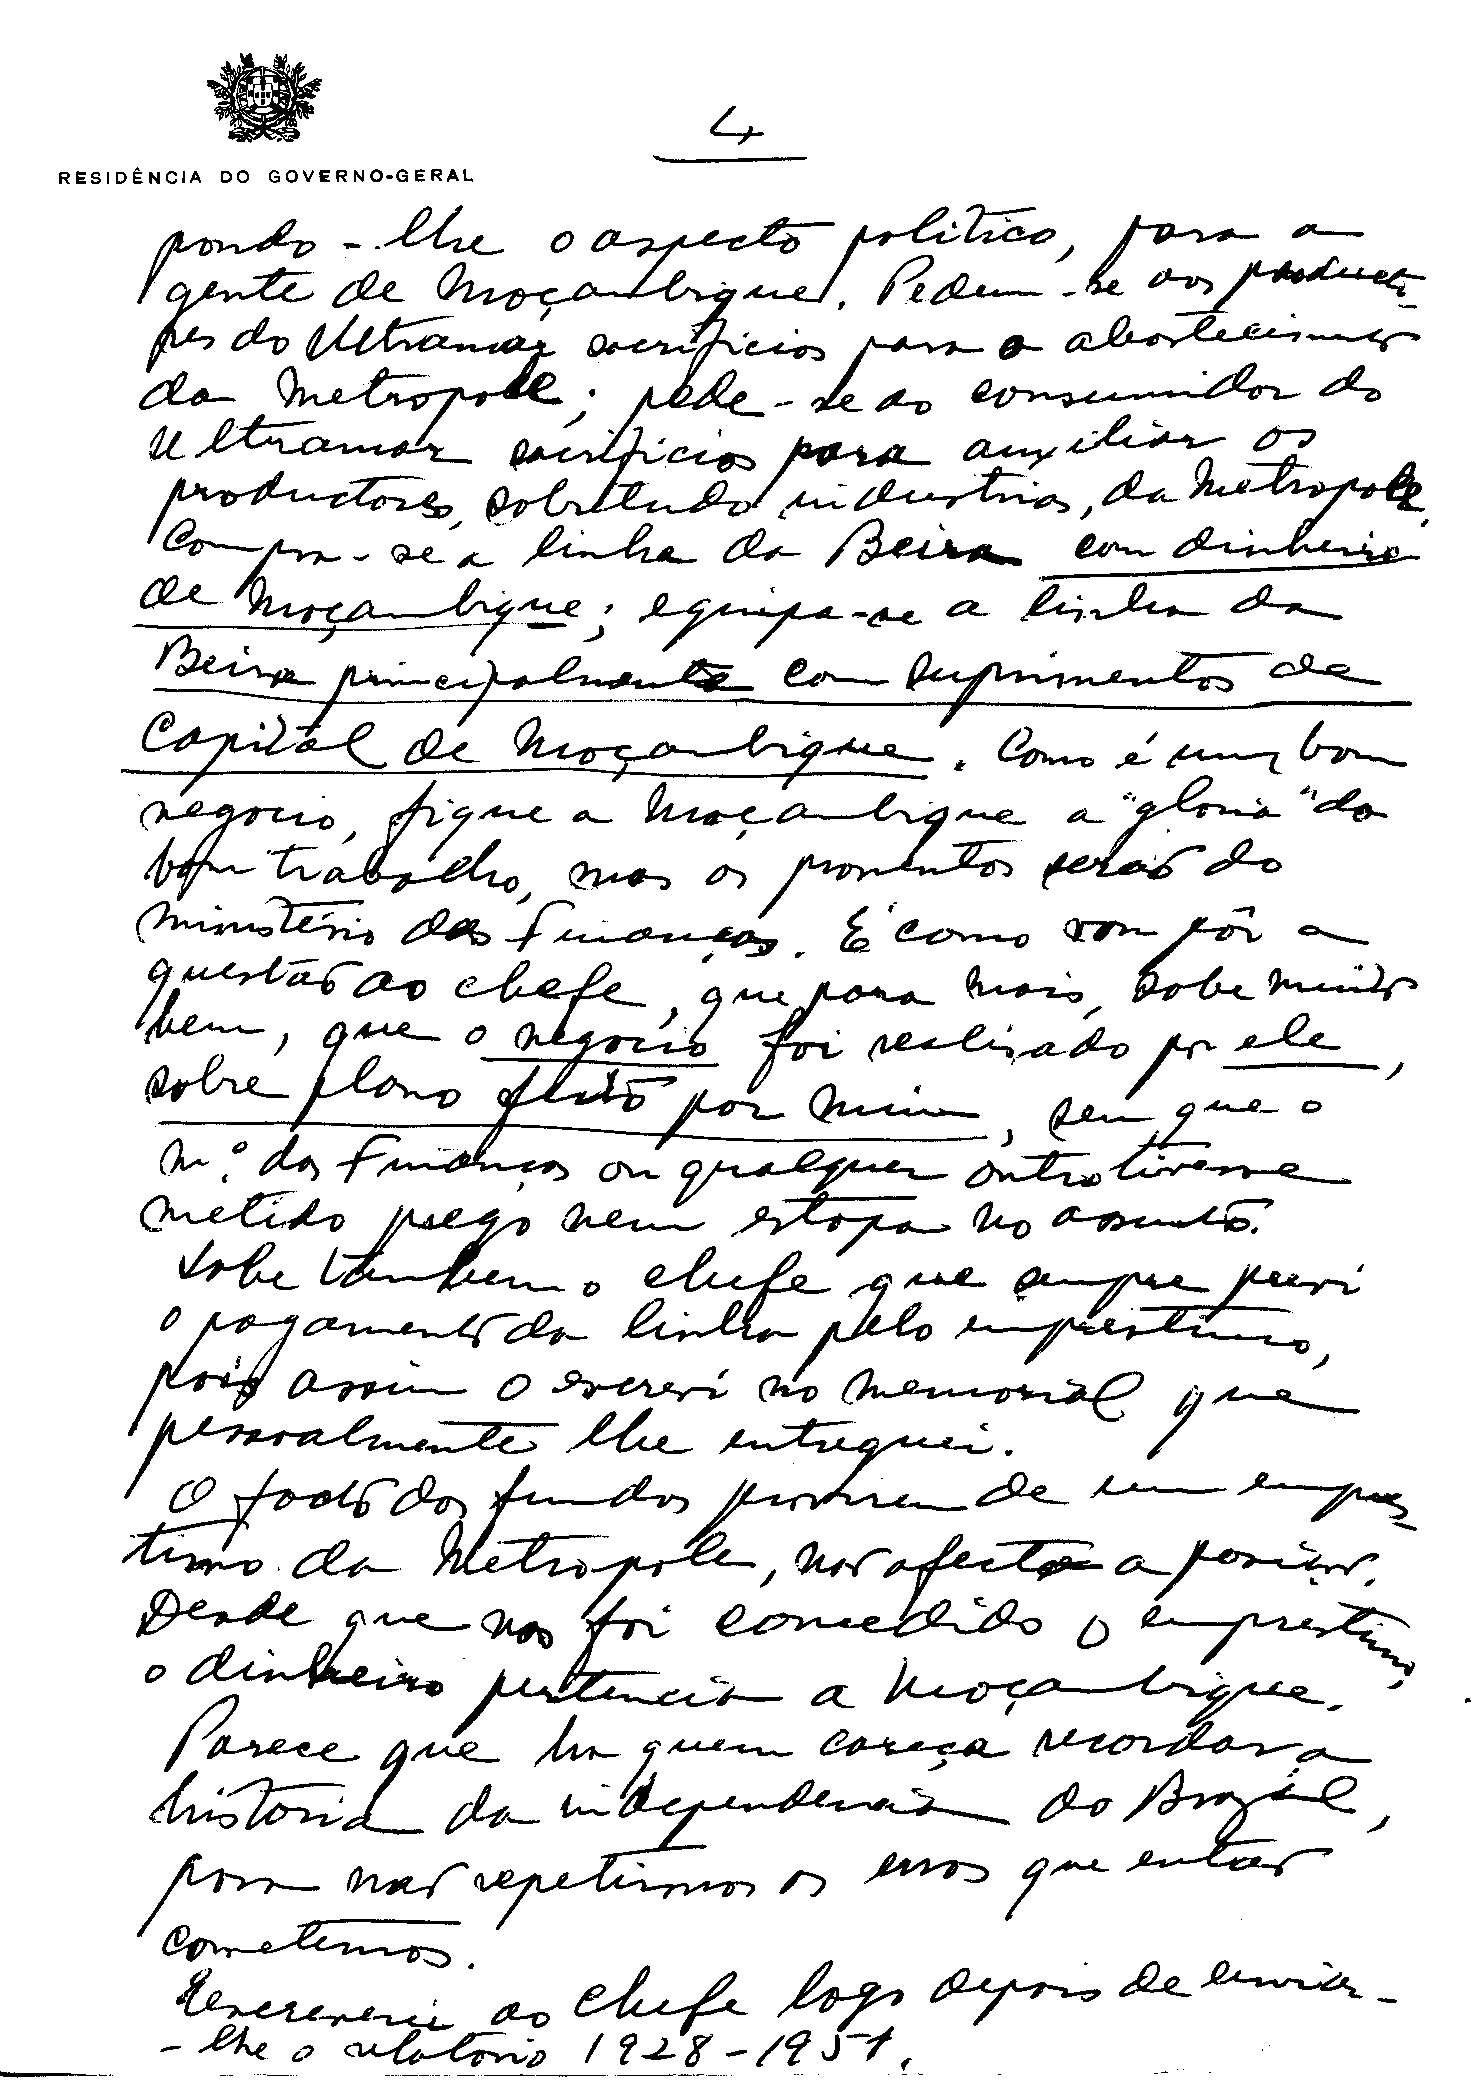 4
RESIDÊNCIA DO GOVERNO-GERAL
pondo-lhe o aspecto politico, para a
gente de Moçambique. Pedem-se aos producto-
res do Ultramar sacrificios para o abastecimento
da Metropole; pede-se ao consumidor do
Ultramar sacrificios para auxiliar os
productores, sobretudo industriais, da Metropole.
Compra-se a linha da Beira com dinheiro
de Moçambique; equipa-se a linha da
Beira principalmente com suprimentos de
Capital de Moçambique. Como é um bom
negocio, fique a Moçambique a "gloria" do
bom trabalho, mas os proventos serão do
ministério das Finanças. É como vou pôr a
questão ao chefe, que para mais, sabe muito
bem, que o negocio foi realisado por ele,
sobre plano feito por mim, sem que o
M.º das Finanças ou qualquer outro tivesse
metido prego nem estopa no assunto.
Sabe tambem o chefe que sempre previ
o pagamento da linha pelo emprestimo,
pois assim o escrevi no memorial que
pessoalmente lhe entreguei.
O facto dos fundos provirem de um empres-
timo da Metropole, não afecta a posição.
Desde que nos foi concedido o emprestimo,
o dinheiro pertencia a Moçambique.
Parece que ha quem careça recordar a
historia da independencia do Brazil,
para não repetirmos os erros que então
cometemos.
Escreverei ao chefe logo depois de enviar-
-lhe o relatorio 1928-1951.